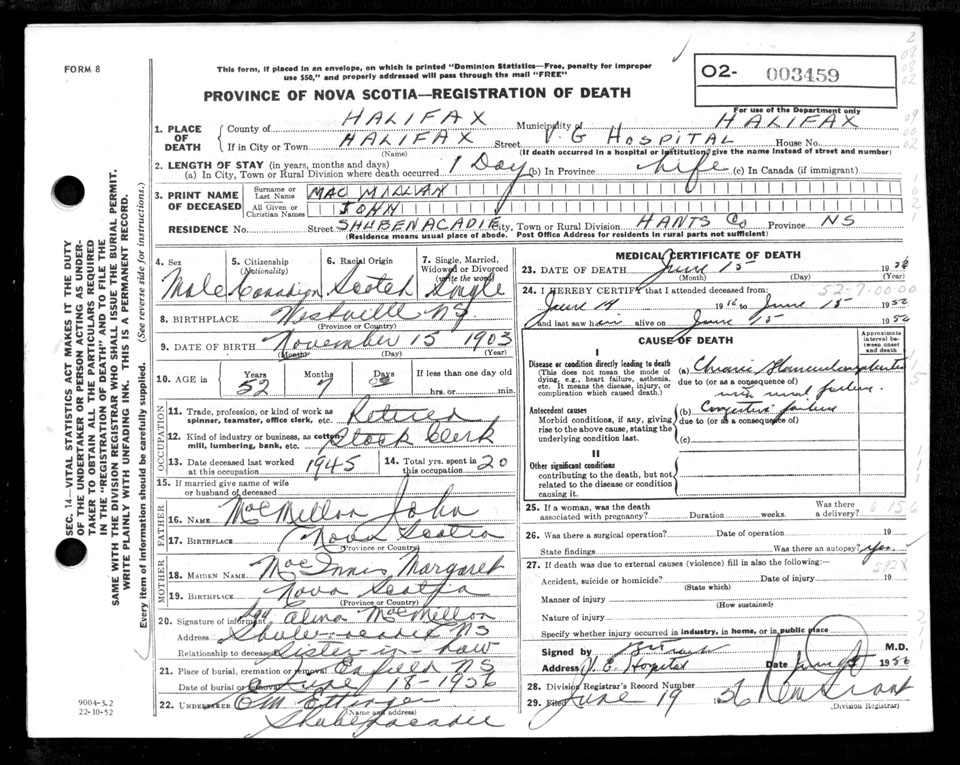 FORM 8
This form, if placed in an envelope, on which is printed "Dominion Statistics—Free, penalty for improper
use $50," and properly addressed will pass through the mail "FREE"
O2- 003459
For use of the Department only
PROVINCE OF NOVA SCOTIA—REGISTRATION OF DEATH
1. PLACE OF DEATH
County of HALIFAX Municipality of HALIFAX
If in City or Town HALIFAX Street V. G HOSPITAL House No.
(Name) (If death occurred in a hospital or institution, give the name instead of street and number)
2. LENGTH OF STAY (in years, months and days)
(a) In City, Town or Rural Division where death occurred 1 Day (b) In Province Life (c) In Canada (if immigrant)
3. PRINT NAME OF DECEASED
Surname or Last Name MAC MILLAN
All Given or Christian Names JOHN
RESIDENCE No. Street SHUBENACADIE City, Town or Rural Division HANTS Co Province NS
(Residence means usual place of abode. Post Office Address for residents in rural parts not sufficient)
4. Sex Male
5. Citizenship (Nationality) Canadian
6. Racial Origin Scotch
7. Single, Married, Widowed or Divorced (write the word) Single
8. BIRTHPLACE Westville NS.
(Province or Country)
9. DATE OF BIRTH November 15 1903
(Month) (Day) (Year)
10. AGE in Years 52 Months 7 Days If less than one day old hrs. or min.
OCCUPATION
11. Trade, profession, or kind of work as spinner, teamster, office clerk, etc. Retired
12. Kind of industry or business, as cotton mill, lumbering, bank, etc. Stock Clerk
13. Date deceased last worked at this occupation 1945
14. Total yrs. spent in this occupation 20
15. If married give name of wife or husband of deceased
FATHER
16. NAME MacMillan John
17. BIRTHPLACE Nova Scotia
(Province or Country)
MOTHER
18. MAIDEN NAME MacInnis Margaret
19. BIRTHPLACE Nova Scotia
(Province or Country)
20. Signature of informant Alma MacMillan
Address Shubenacadie NS
Relationship to deceased Sister-in-law
21. Place of burial, cremation or removal Enfield NS
Date of burial or removal June 18-1956
22. UNDERTAKER E M Ettinger
(Name and address)
Shubenacadie
MEDICAL CERTIFICATE OF DEATH
23. DATE OF DEATH June 15 1956
(Month) (Day) (Year)
24. I HEREBY CERTIFY that I attended deceased from
52-7-00-00
June 14 1956 to June 15 1956
and last saw him alive on June 15 1956
CAUSE OF DEATH
Approximate interval between onset and death
I
Disease or condition directly leading to death
(This does not mean the mode of dying, e.g., heart failure, asthenia, etc. It means the disease, injury, or complication which caused death.)
(a) Chronic
due to (or as a consequence of)
with renal failure.
Antecedent causes
Morbid conditions, if any, giving rise to the above cause, stating the underlying condition last.
(b) Congestive failure
due to (or as a consequence of)
(c)
II
Other significant conditions
contributing to the death, but not related to the disease or condition causing it.
25. If a woman, was the death associated with pregnancy? Duration weeks. Was there a delivery?
26. Was there a surgical operation? Date of operation 19
State findings Was there an autopsy? Yes.
27. If death was due to external causes (violence) fill in also the following:—
Accident, suicide or homicide? Date of injury 19
(State which)
Manner of injury
(How sustained)
Nature of injury
Specify whether injury occurred in industry, in home, or in public place
Signed by M.D.
Address V. G. Hospital Date 1956
28. Division Registrar's Record Number
29. Filed June 19 1956
(Division Registrar)
SEC. 14—VITAL STATISTICS ACT MAKES IT THE DUTY
OF THE UNDERTAKER OR PERSON ACTING AS UNDER-
TAKER TO OBTAIN ALL THE PARTICULARS REQUIRED
IN THE "REGISTRATION OF DEATH" AND TO FILE THE
SAME WITH THE DIVISION REGISTRAR WHO SHALL ISSUE THE BURIAL PERMIT.
WRITE PLAINLY WITH UNFADING INK. THIS IS A PERMANENT RECORD.
Every item of information should be carefully supplied. (See reverse side for instructions.)
9004-3.2
22-10-52